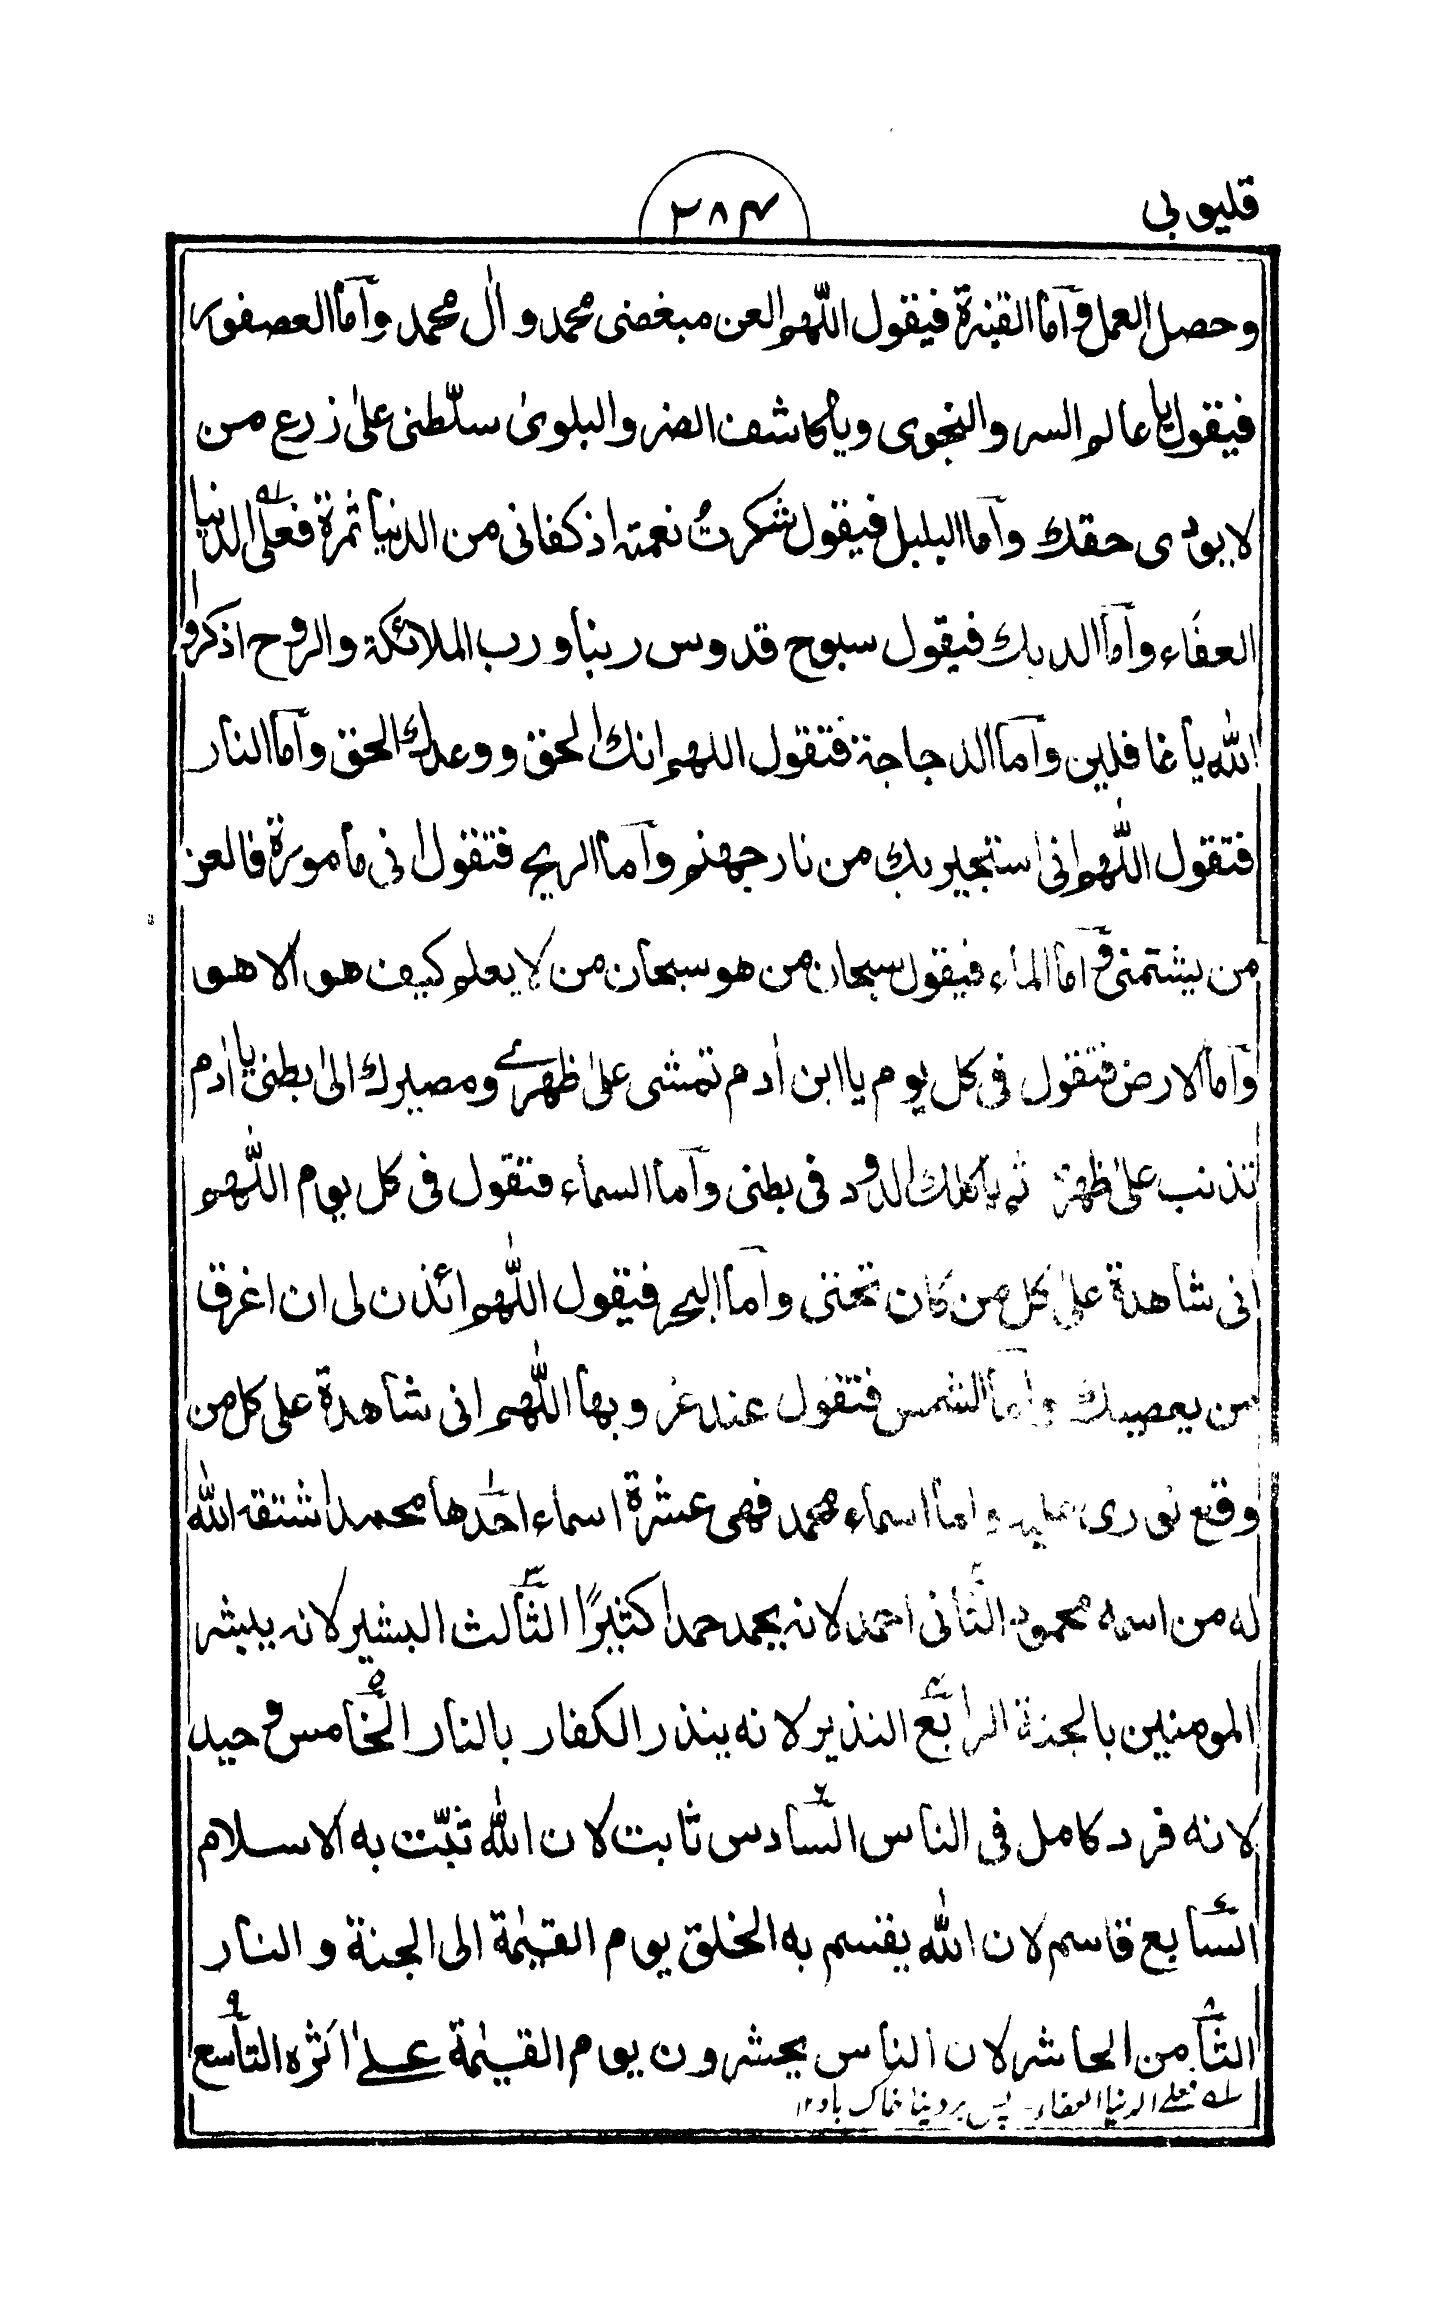 قليوبي
٢٨٤
وحصل العمل وآما القنبرة فيقول اللّٰهم العن مبغضى محمد و اٰل محمد وآما العصفور
فيقول يا عالم السر والنجوى ويا كاشف الضر والبلوىٰ سلّطنى علىٰ زرع من
لا يودى حقك وآما البلبل فيقول شكرتُ نعمته اذ كفانى من الدنيا ثمرة فعلى الدنيا
العفاء وآما الديك فيقول سبوح قدوس ربنا ورب الملائكة والروح اذكروا
اللّٰه يا غافلين وآما الدجاجة فتقول اللهم انك الحق ووعدك الحق وآما النار
فتقول اللّٰهم انى استجير بك من نار جهنم وآما الريح فتقول انى مامورة فالعن
من يشتمنى وآما الماء فيقول سبحان من هو سبحان من لا يعلم كيف هو الا هو
وآما الارض فتقول فى كل يوم يا ابن اٰدم تمشى علىٰ ظهرے ومصيرك الىٰ بطنى يا اٰدم
تذنب علىٰ ظهرى ثم ياكلك الدود فى بطنى وآما السماء فتقول فى كل يوم اللّٰهم
انى شاهدة علىٰ كل من كان تحتى وآما البحر فيقول اللّٰهم ائذن لى ان اغرق
من يعصيك وآما الشمس فتقول عند غروبها اللّٰهم انى شاهدة على كل من
وقع نورى عليه واما اسماء محمد فهى عشرة اسماء احدها محمد اشتقه اللّٰه
له من اسمه محمود الثانى احمد لانه يحمد حمدا كثيرًا الثالث البشير لانه يبشر
المومنين بالجنة الرابع النذير لانه ينذر الكفار بالنار الخامس وحيد
لانه فرد كامل فى الناس السادس ثابت لان اللّٰه ثبّت به الاسلام
السابع قاسم لان اللّٰه يقسم به الخلق يوم القيٰمة الى الجنة والنار
الثامن الحاشر لان الناس يحشرون يوم القيٰمة علىٰ اثره التاسع
لـه فعلے الدنيا العفاء۔ پس بر دنيا خاک باد ١٢